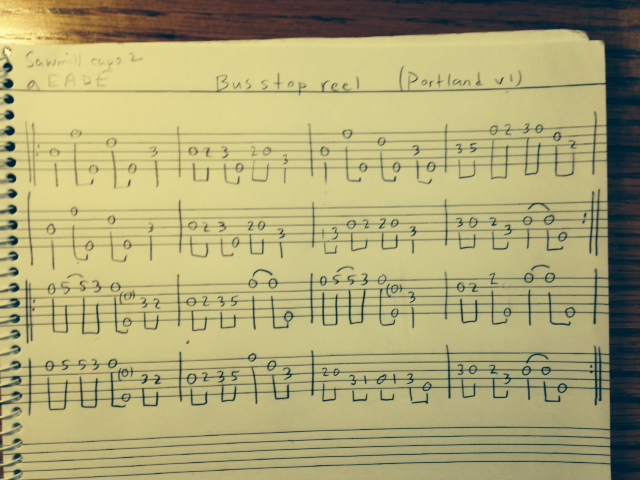 Sawmill capo 2
a EADE
Bus stop reel (Portland v1)
0 0 0 0 0 3 0 2 3 0 2 0 3 0 0 0 0 0 3 0 3 5 0 2 3 0 0 2
0 0 0 0 0 3 0 2 3 0 2 0 3 1 3 0 2 2 0 3 3 0 2 3 0 0 0
0 5 5 3 0 (0) 0 3 2 0 2 3 5 0 0 0 0 5 5 3 0 (0) 0 3 0 2 2 0 0 0 0
0 5 5 3 0 (0) 0 3 2 0 2 3 5 0 0 3 2 0 3 1 0 1 3 0 3 0 2 3 0 0 0